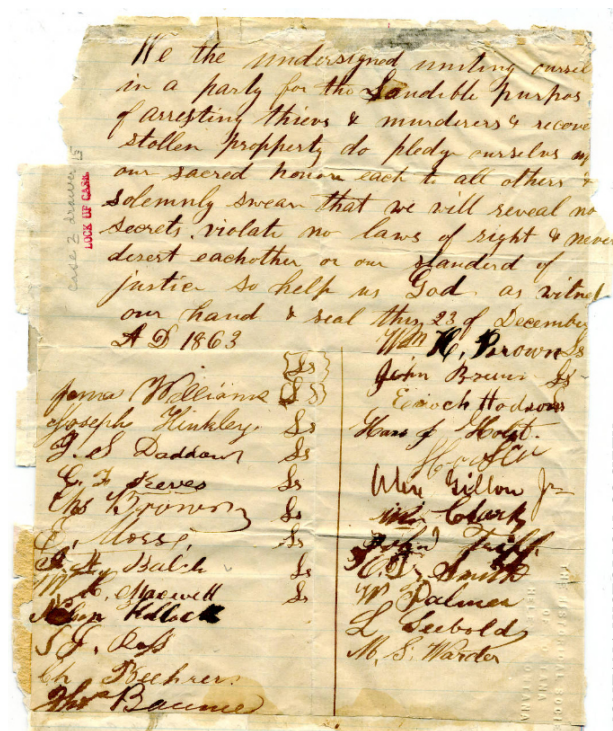 We the undersigned uniting oursel
in a party for the Laudible purpos
of arresting thievs & murderers & recove
stollen propperty do pledge ourselvs
our sacred honor each to all others &
solemnly swear that we will reveal no
secrets, violate no laws of right & never
desert eachother or our standerd of
justice so help us God. as witness
our hand & seal this 23 of December
A D 1863
case 2 drawer 5
LOCK UP CASE
{Ls}
James Williams {LS}
Joseph Hinkley. Ls
J. S. Daddow Ls
C. F. Reeves Ls
Chs Brown Ls
E. Morse, Ls
Balch Ls
W. C. Maxwell Ls
Nelson Kellock
S. J. Ross
Ch. Beehrer.
Thos Baume
Wm H. Brown Ls
John Brown Ls
Enoch Hodson Ls
Hans J Holst.
Alex Gillon Jr
Wm Clark
John Triff.
C. D. Smith
W Palmer
L Seebold
M. S. Warder